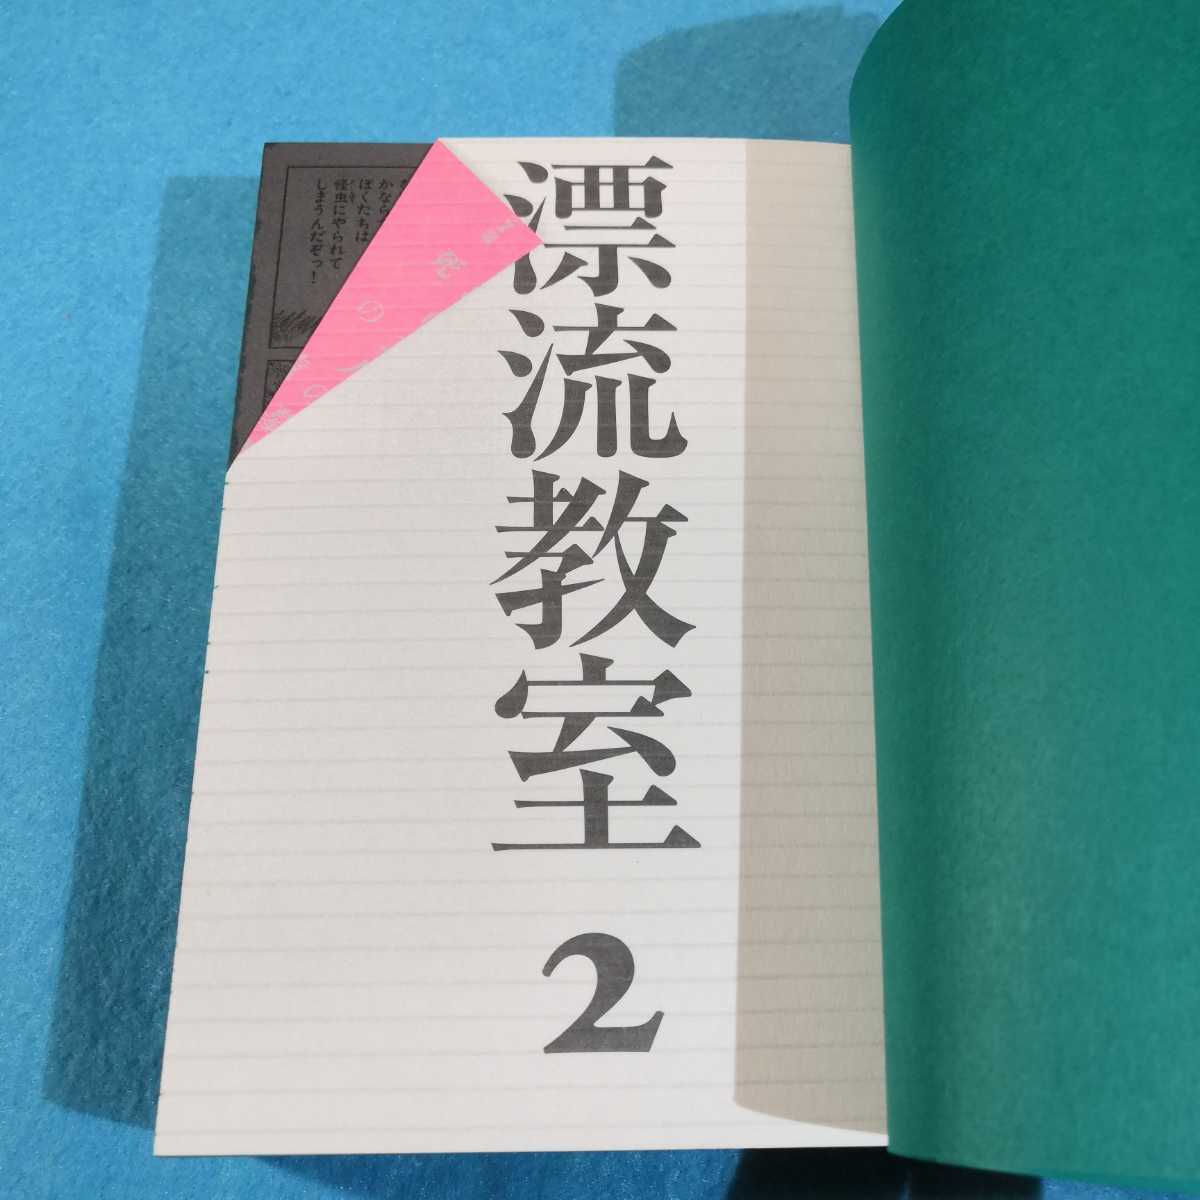 漂流教室
2
かなら
ぼくたちは
怪虫にやられて
しまうんだぞっ！
の